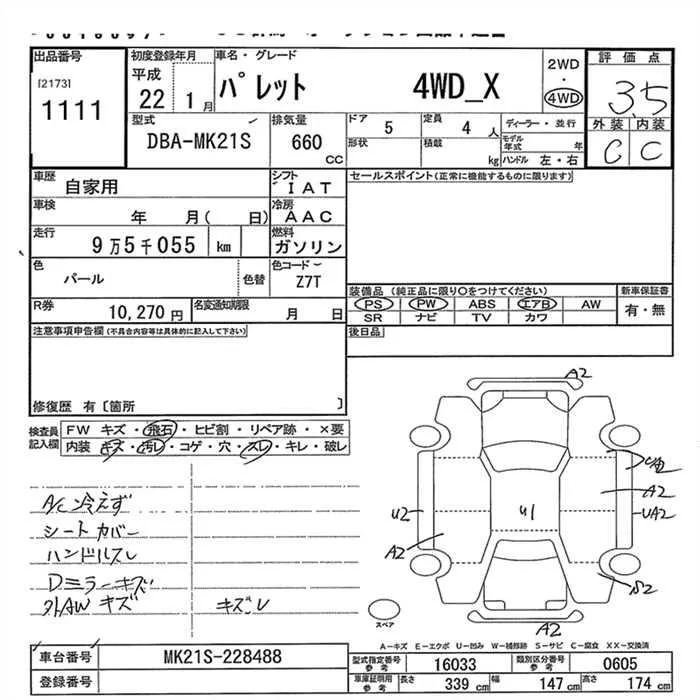 出品番号
[2173]
1111
初度登録年月
平成
22 1月
車名・グレード
パレット 4WD_X
2WD
・
4WD
評価点
3.5
外装 内装
C C
型式
DBA-MK21S
排気量
660
CC
ドア
5
定員
4 人
形状
積載
kg
ディーラー・並行
モデル年式
年
ハンドル 左・右
車歴
自家用
シフト
IAT
車検
年 月( 日)
冷房
AAC
走行
9万5千055 km
燃料
ガソリン
色
パール
色替
色コード
Z7T
R券
10,270円
名変通知期限
月 日
セールスポイント(正常に機能するものに限ります)
装備品 (純正品に限り○をつけてください)
PS PW ABS エアB AW
SR ナビ TV カワ
新車保証書
有・無
後日品
注意事項申告欄(不具合内容等は具体的に記入して下さい)
修復歴 有〔箇所 〕
検査員記入欄
FW キズ・飛石・ヒビ割・リペア跡・×要
内装 キズ・汚レ・コゲ・穴・スレ・キレ・破レ
A/C 冷えず
シートカバー
ハンドルスレ
Dミラーキズ
外AW キズ
A2
UA2
A2
U2
U1
UA2
A2
S2
A2
スペア
A-キズ E-エクボ U-凹み W-補修跡 S-サビ C-腐食 XX-交換済
車台番号
MK21S-228488
登録番号
型式指定番号
参考
16033
類別区分番号
参考
0605
車庫証明用
参考
長さ 339 cm
幅 147 cm
高さ 174 cm